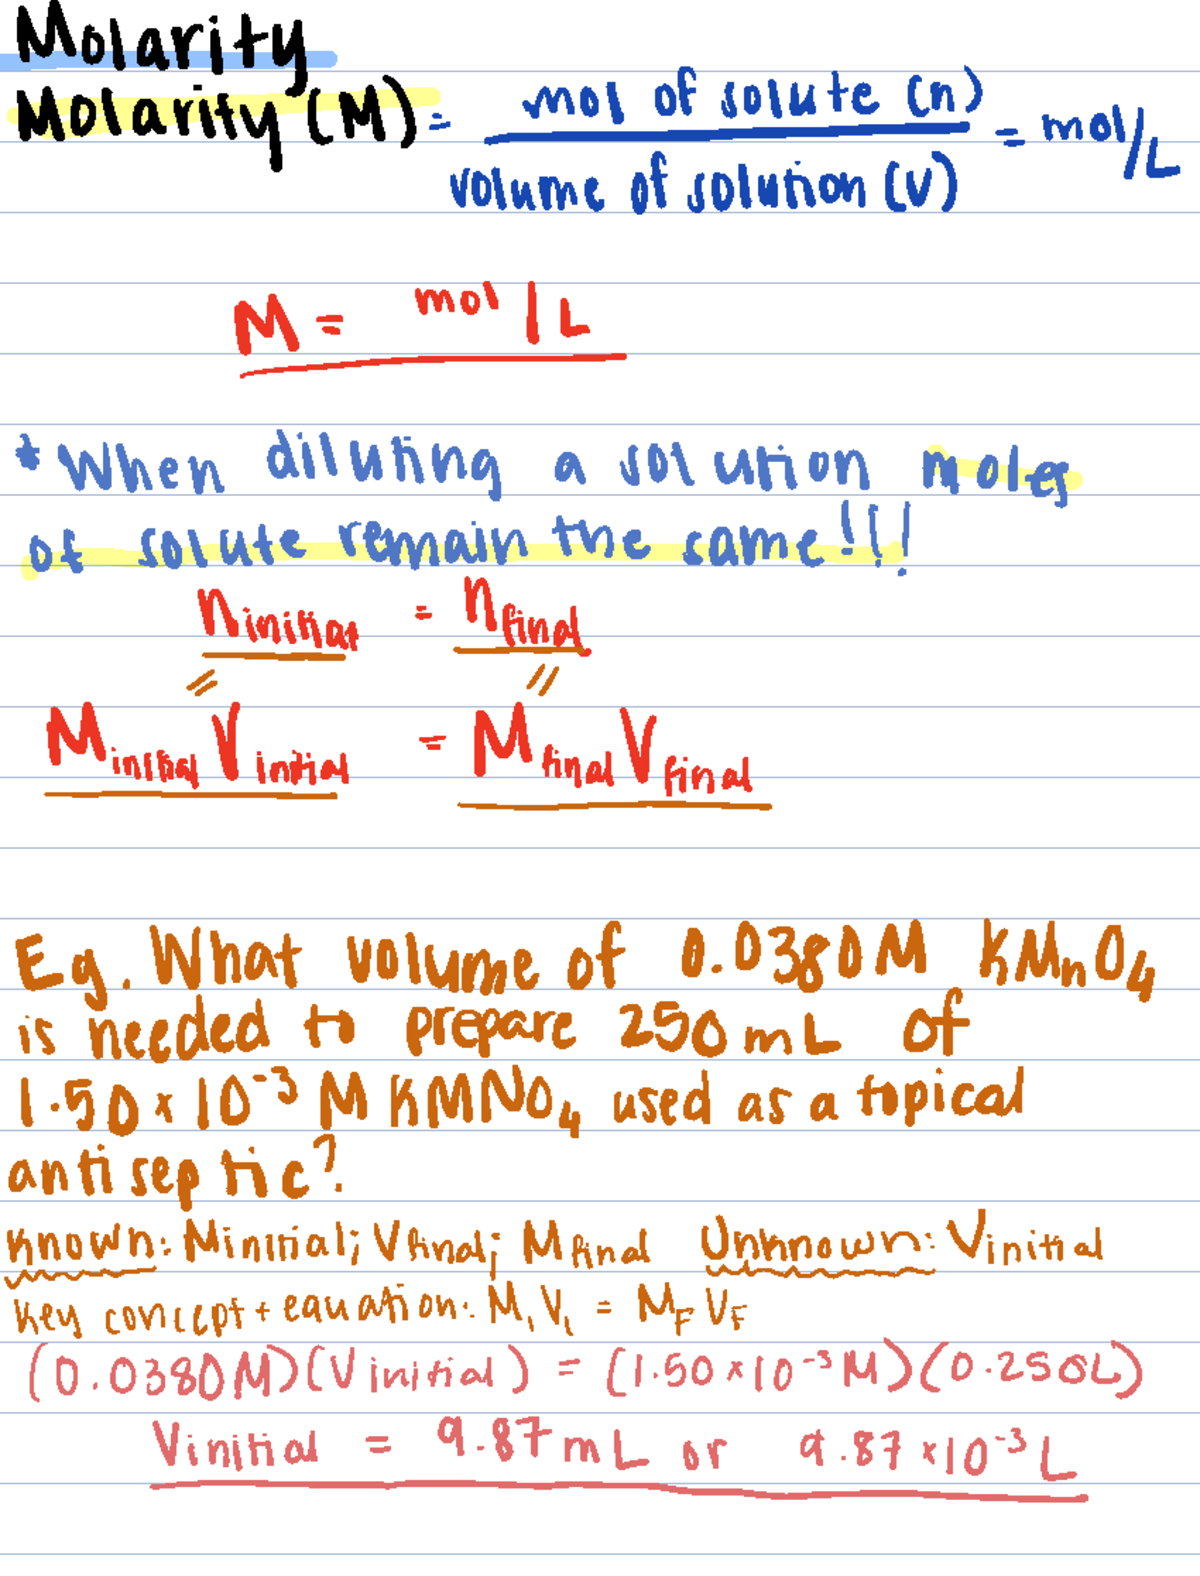 Molarity
Molarity (M) = mol of solute (n) / volume of solution (V) = mol/L
M = mol / L
* When diluting a solution moles
of solute remain the same!!!
n initial = n final
= =
M initial V initial = M final V final
Eg. What volume of 0.0380M KMnO4
is needed to prepare 250mL of
1.50 x 10^-3 M KMNO4 used as a topical
antiseptic?
Known: Minitial; Vfinal; Mfinal Unknown: Vinitial
Key concept + equation: M, V, = MF VF
(0.0380M)(Vinitial) = (1.50 x 10^-3 M)(0.250L)
Vinitial = 9.87mL or 9.87 x 10^-3 L